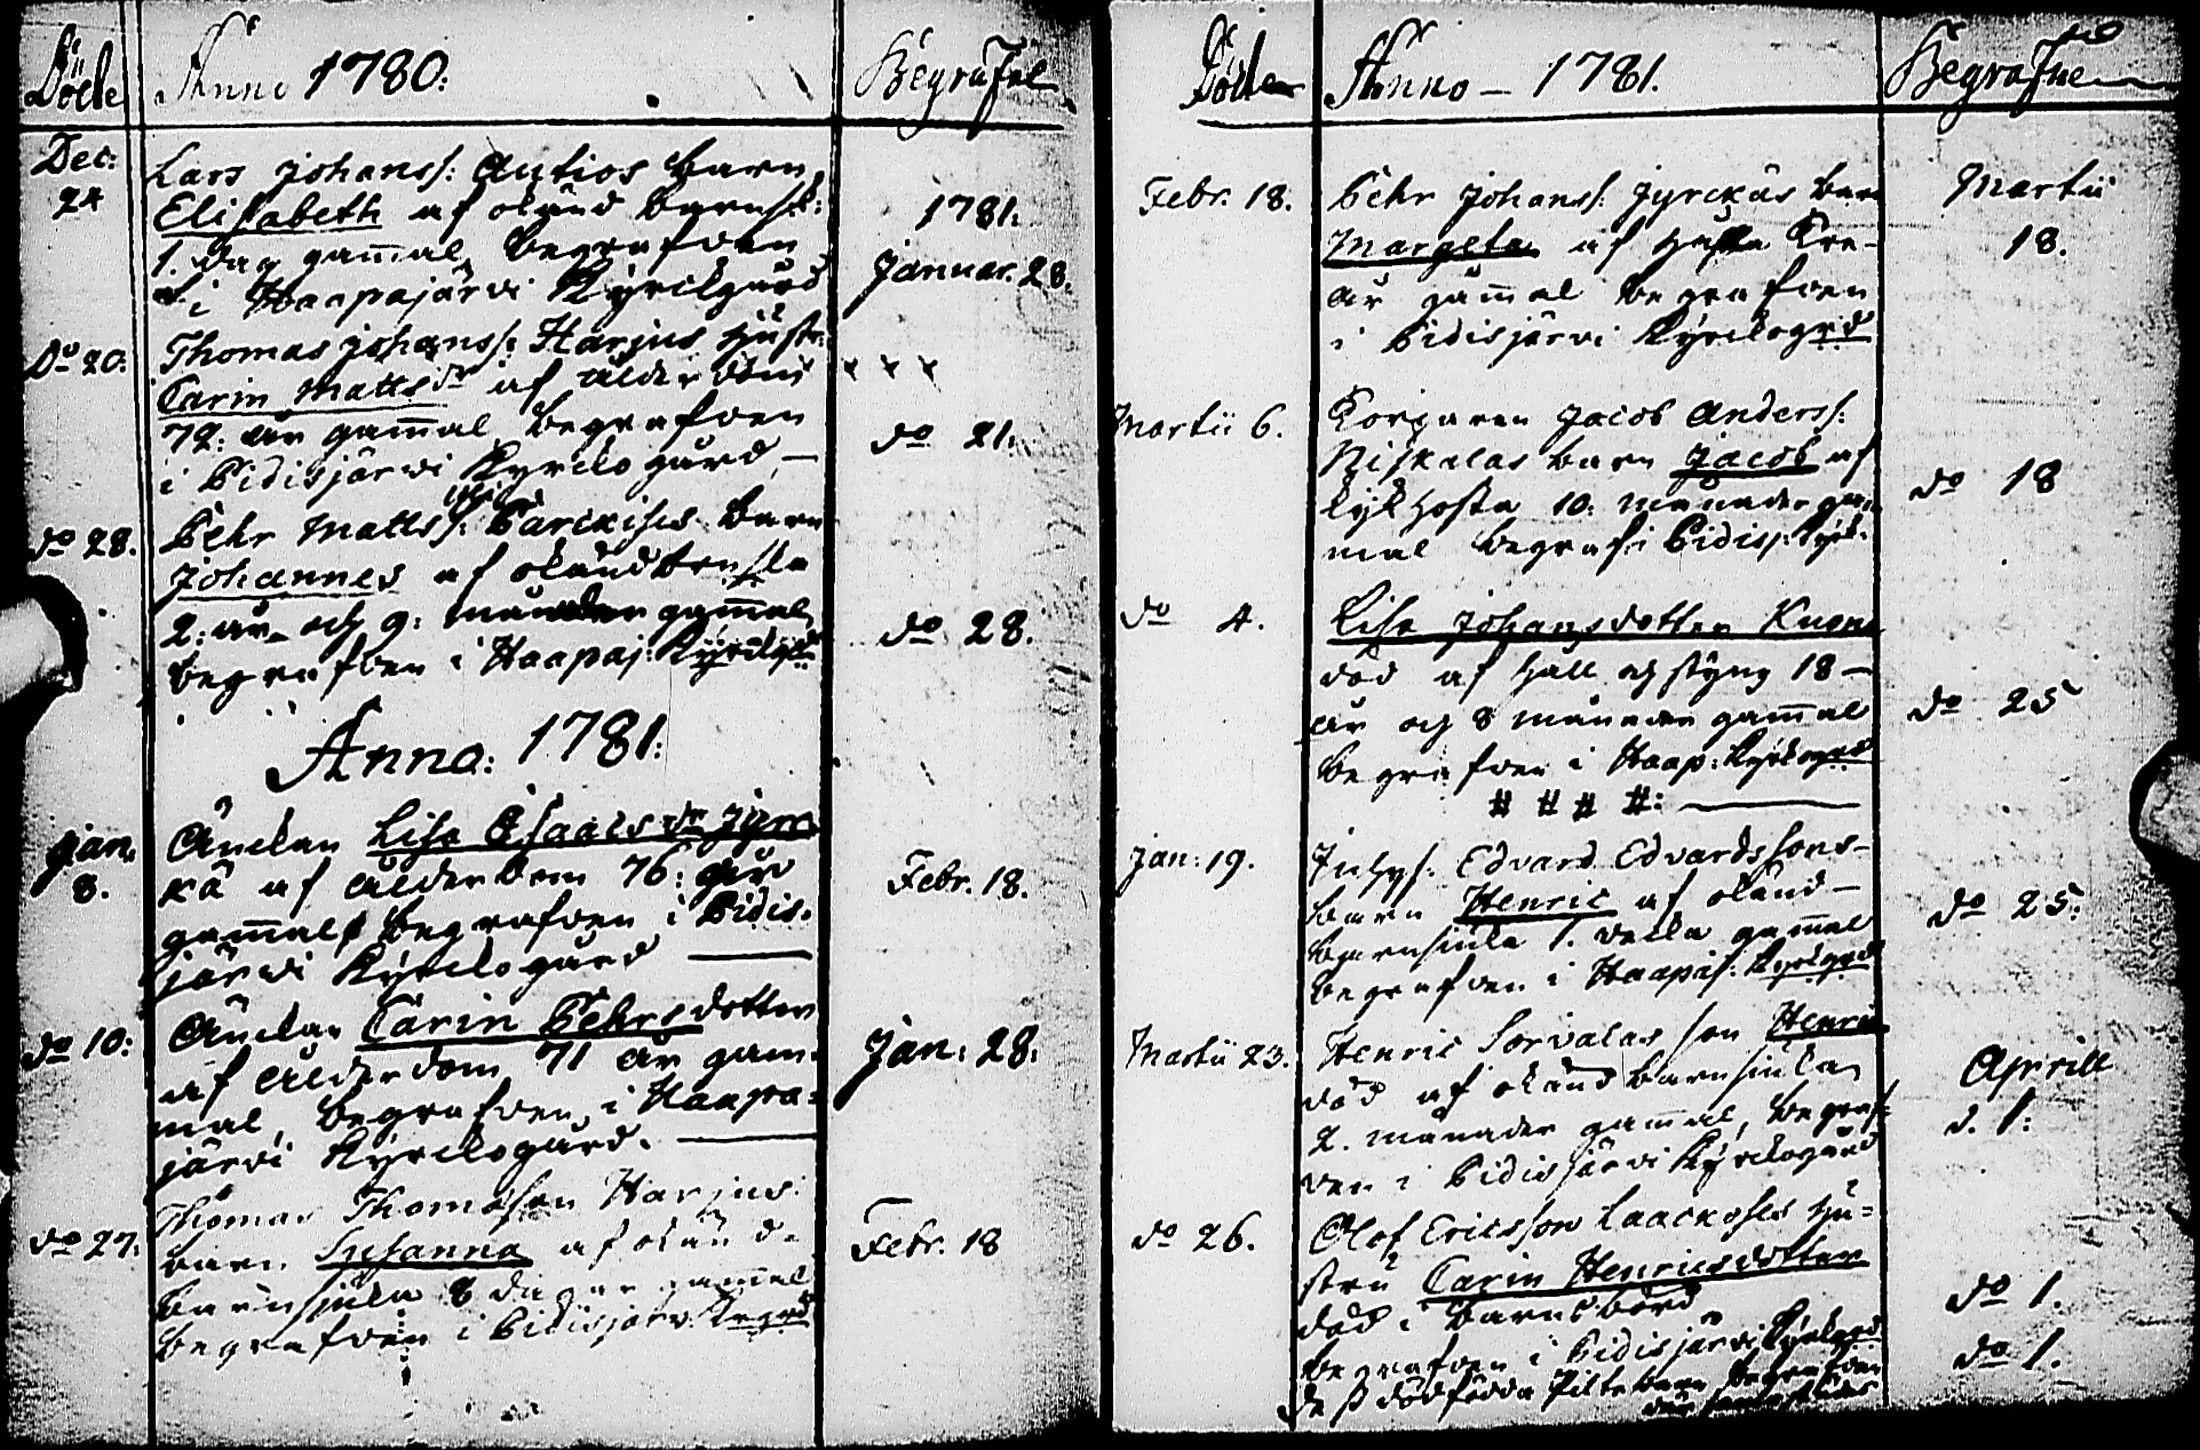 Döde Anno 1780: Begrafne
Dec: 24 Lars Johanss: Autios barn
Elisabeth af okänd barnsj:
1. dag gam̄al, begrafven
i Haapajärvi Kyrckgård
1781:
Januar. 28.
Do 20: Thomas Johanss: Harjus hustr:
Carin Mattsdr af ålderdom
72: år gam̄al begrafven
i Pidisjärvi Kyrcko gård —
x x x
do 21:
do 28. Pehr Matts: Parckisis barn
Johannes af okänd
2: år och 9: månader gam̄al
begrafven i Haapaj: Kyrckgd
do 28.
Anno: 1781:
Jan. 8. Änckan Lisa Esaacsdr Jyrc
kä af ålderdom 76: åhr
gam̄al begrafven i Pidis:
järvi Kyrckogård —
Febr. 18.
do 10: Änckan Carin Pehrsdotter
af ålderdom 71 år gam:
mal, begrafven, i Haapa:
järvi Kyrckogård. —
Jan: 28:
do 27: Thomas Thomasson Harjus:
barn Susanna af okänd
barnsjuka 8 dagar gam̄al
begrafven i Pidisjärv:
Febr. 18
Döde Anno – 1781. Begrafne
Febr. 18. Pehr Johanss: Jyrckäs barn
Margeta af
år gam̄al begrafven
i Pidisjärvi Kyrckogrd
Martii
18.
Martii 6. Torparen Jacob Anderss:
Niskalas barn Jacob af
kikhosta 10: månader gam:
mal begraf: i Pidisj: Kyrk:
do 18
do 4. Lisa Johansdotter Kuon
död af håll och styng 18 —
år och 8 månader gam̄al
begrafven i Haap: Kyrkogrd
# # # #: —
do 25
Jan: 19. Inhys: Edvard Edvardssons
barn Henric af okänd —
barnsjuka 1. vecka gam̄al
begrafven i Haapaj: Kyrkgrd
do 25:
Martii 23. Henric Sorvalas son Henric
död af okänd barnsjuka
2. månader gam̄al, begraf:
ven i Pidisjärvi Kyrckogård
Aprill
d. 1:
do 26. Olof Ericsson Laackoses hu=
stru Carin Henricsdotter
död i barnsbörd
begrafven i Pidisjärvi Kyrkogrd
do 1.
dödfödda Pilte barn begrafven
do 1.